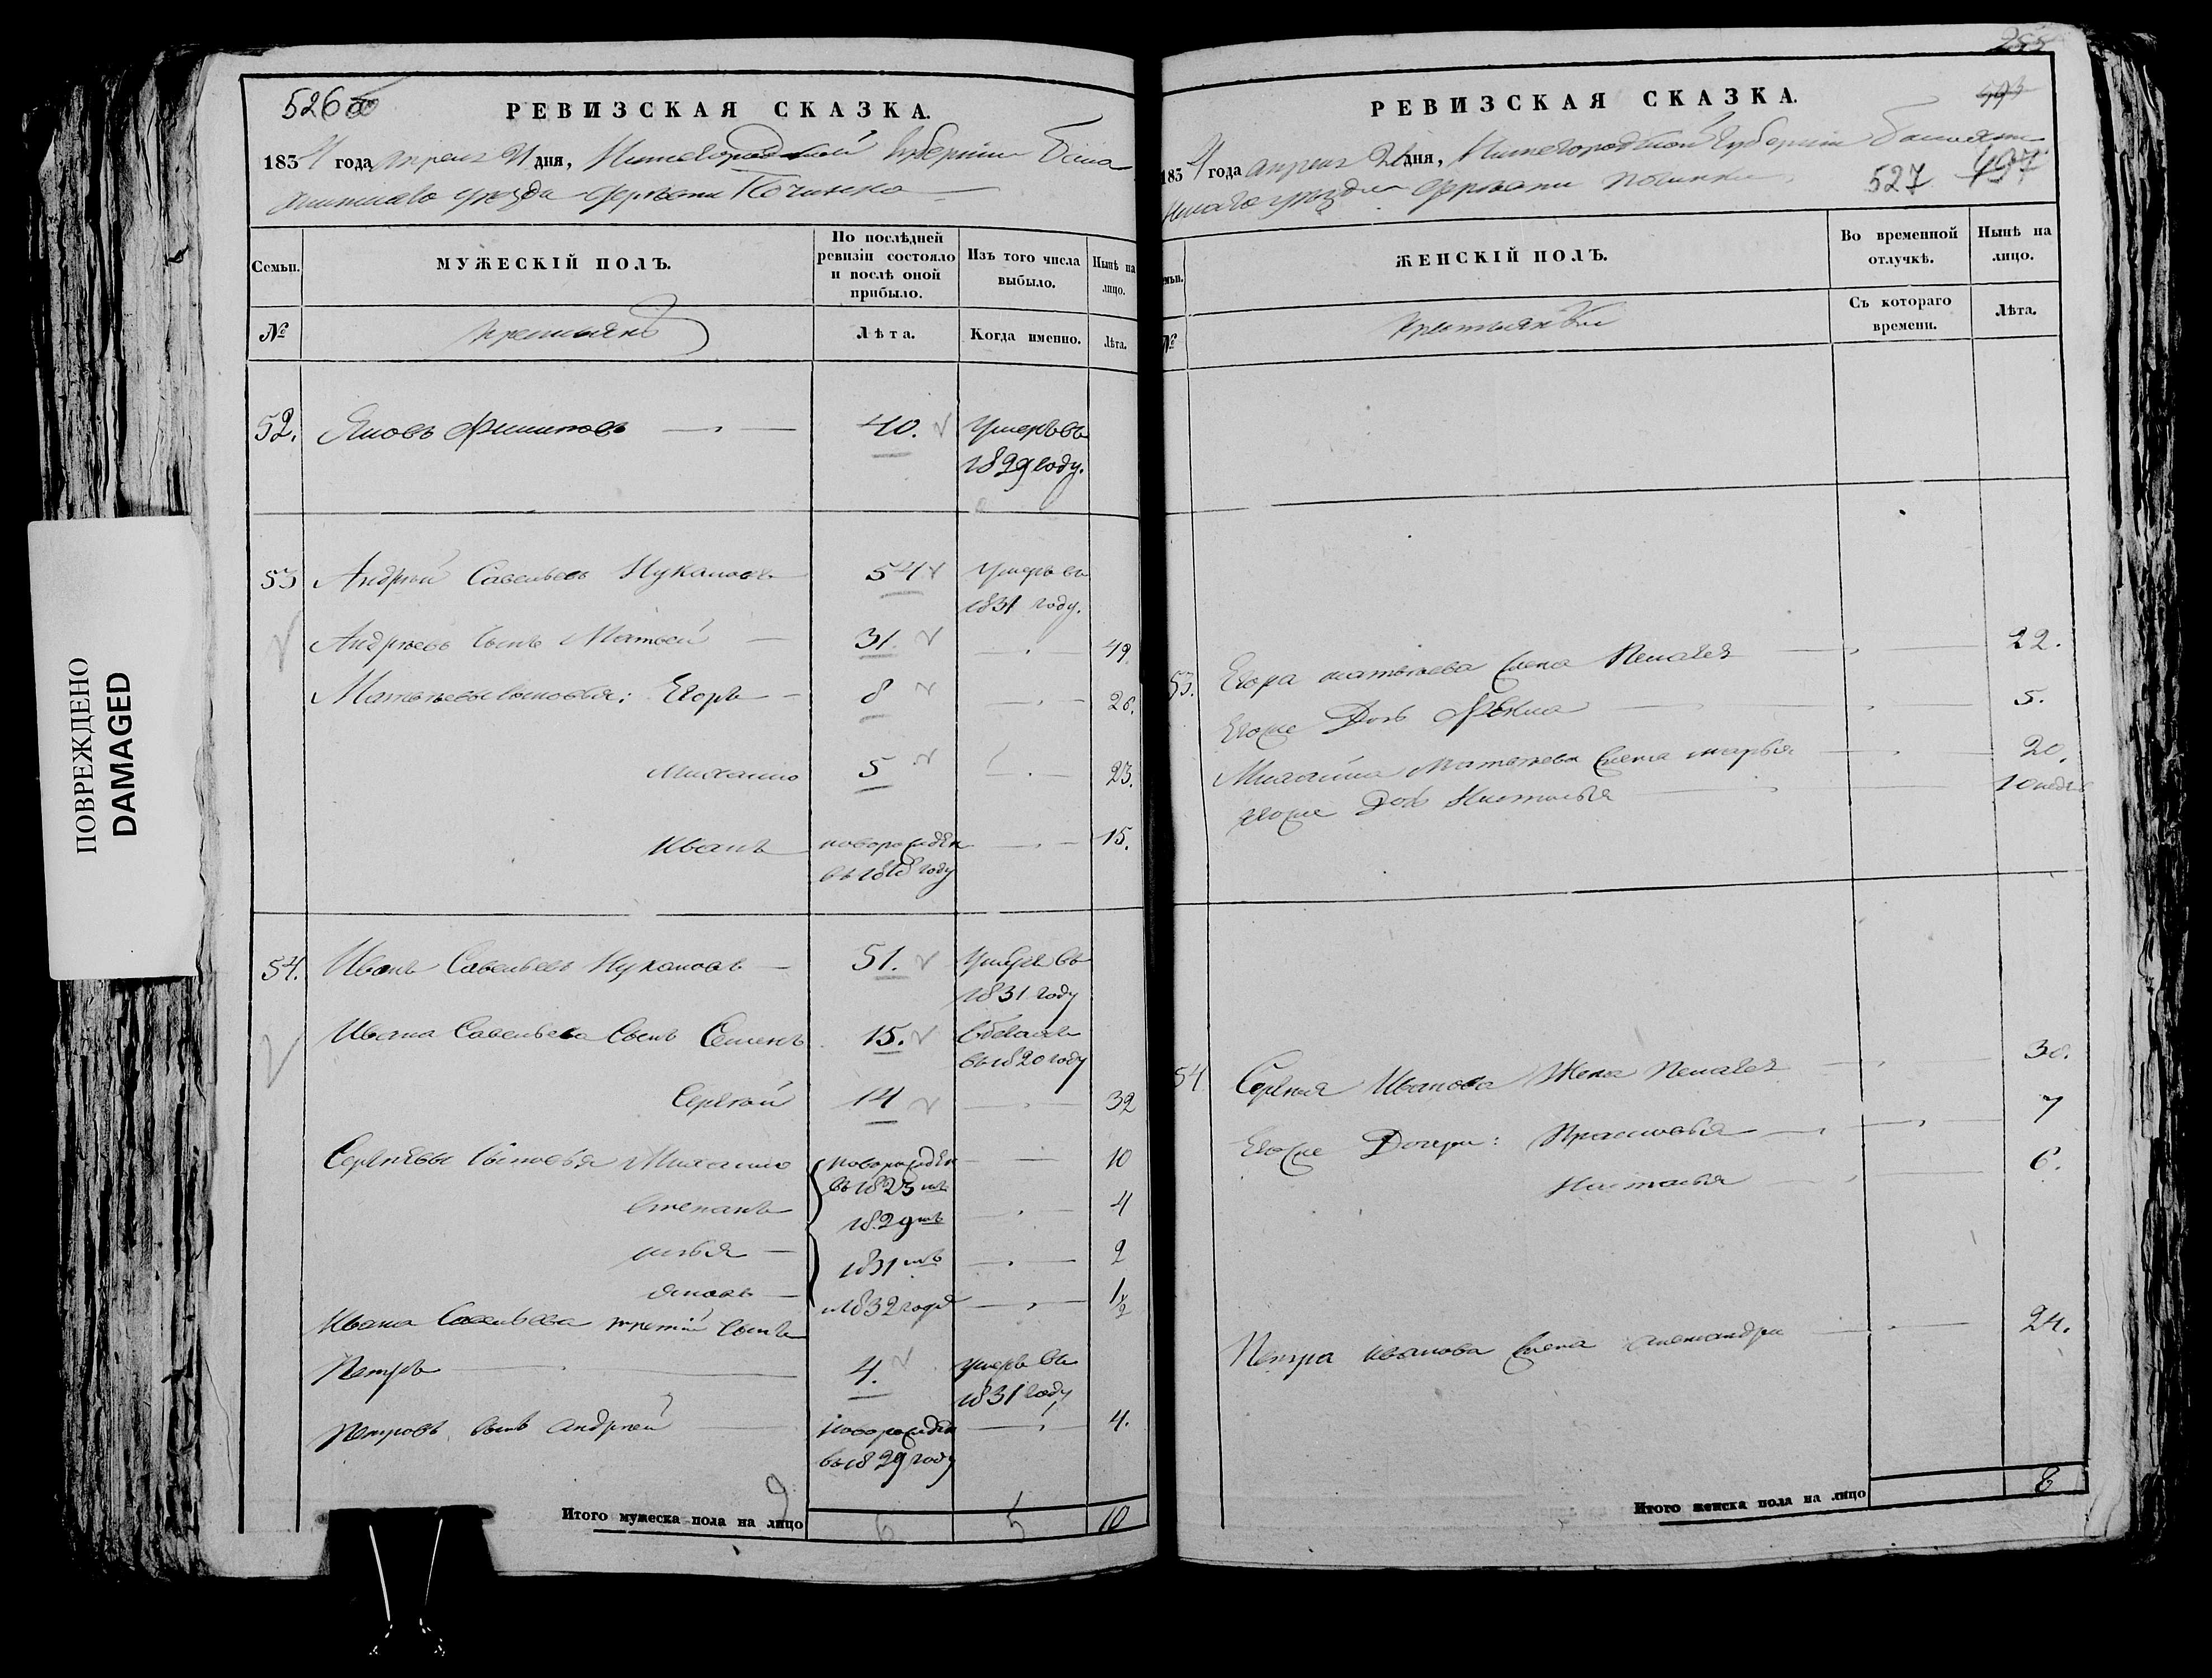 ПОВРЕЖДЕНО
DAMAGED
526
РЕВИЗСКАЯ СКАЗКА.
1834 года апреля 21 дня, Нижегородской Губернии Бала
хнинскаго уезда деревни Починка
Семьи. МУЖЕСКІЙ ПОЛЪ. По послѣдней ревизіи состояло и послѣ оной прибыло. Изъ того числа выбыло. Нынѣ на лицо.
№ крестьянъ Лѣта. Когда именно. Лѣта.
52. Яковъ Филиповъ 40. Умеръ въ
1829 году.
53 Андрей Савельевъ Нукаловъ 54 Умеръ въ
1831 году.
Андреевъ сынъ Матвей 31. 49.
Матвеевы сыновья: Егоръ 8 26.
Михайло 5 23.
Иванъ новорожден 15.
въ 1818 году
54. Иванъ Савельевъ 51. Умеръ въ
1831 году
Ивана Савельева Сынъ Семенъ 15.
въ 1820 году
Сергей 14 32
Сергеевы Сыновья Михайло новорожден 10
въ 1823 мъ
Степанъ 1829 мъ 4
Илья 1831 мъ 2
Яковъ 1832 года 1/2
Ивана Савельева третій Сынъ
Петръ 4. умеръ въ
1831 году
Петровъ сынъ андрей новорожден 4.
въ 1829 году
Итого мужеска пола на лицо 6 5 10
255
РЕВИЗСКАЯ СКАЗКА.
1834 года апреля 21 дня, Нижегородской Губерніи Балахни
нскаго уезда деревни починки
527 497
Семьи. ЖЕНСКІЙ ПОЛЪ. Во временной отлучкѣ. Нынѣ на лицо.
№ крестьянки Съ котораго времени. Лѣта.
53. Егора матвеева жена Пелагея 22.
Егоже Дочь Фекла 5.
Михайла Матвеева жена марья 20.
егоже Дочь Наталья 10 недель
54 Сергея Иванова Жена Пелагея 30.
Егоже Дочери: Прасковья 7
Наталья 6.
Петра иванова жена александра 24.
Итого женска пола на лицо 8